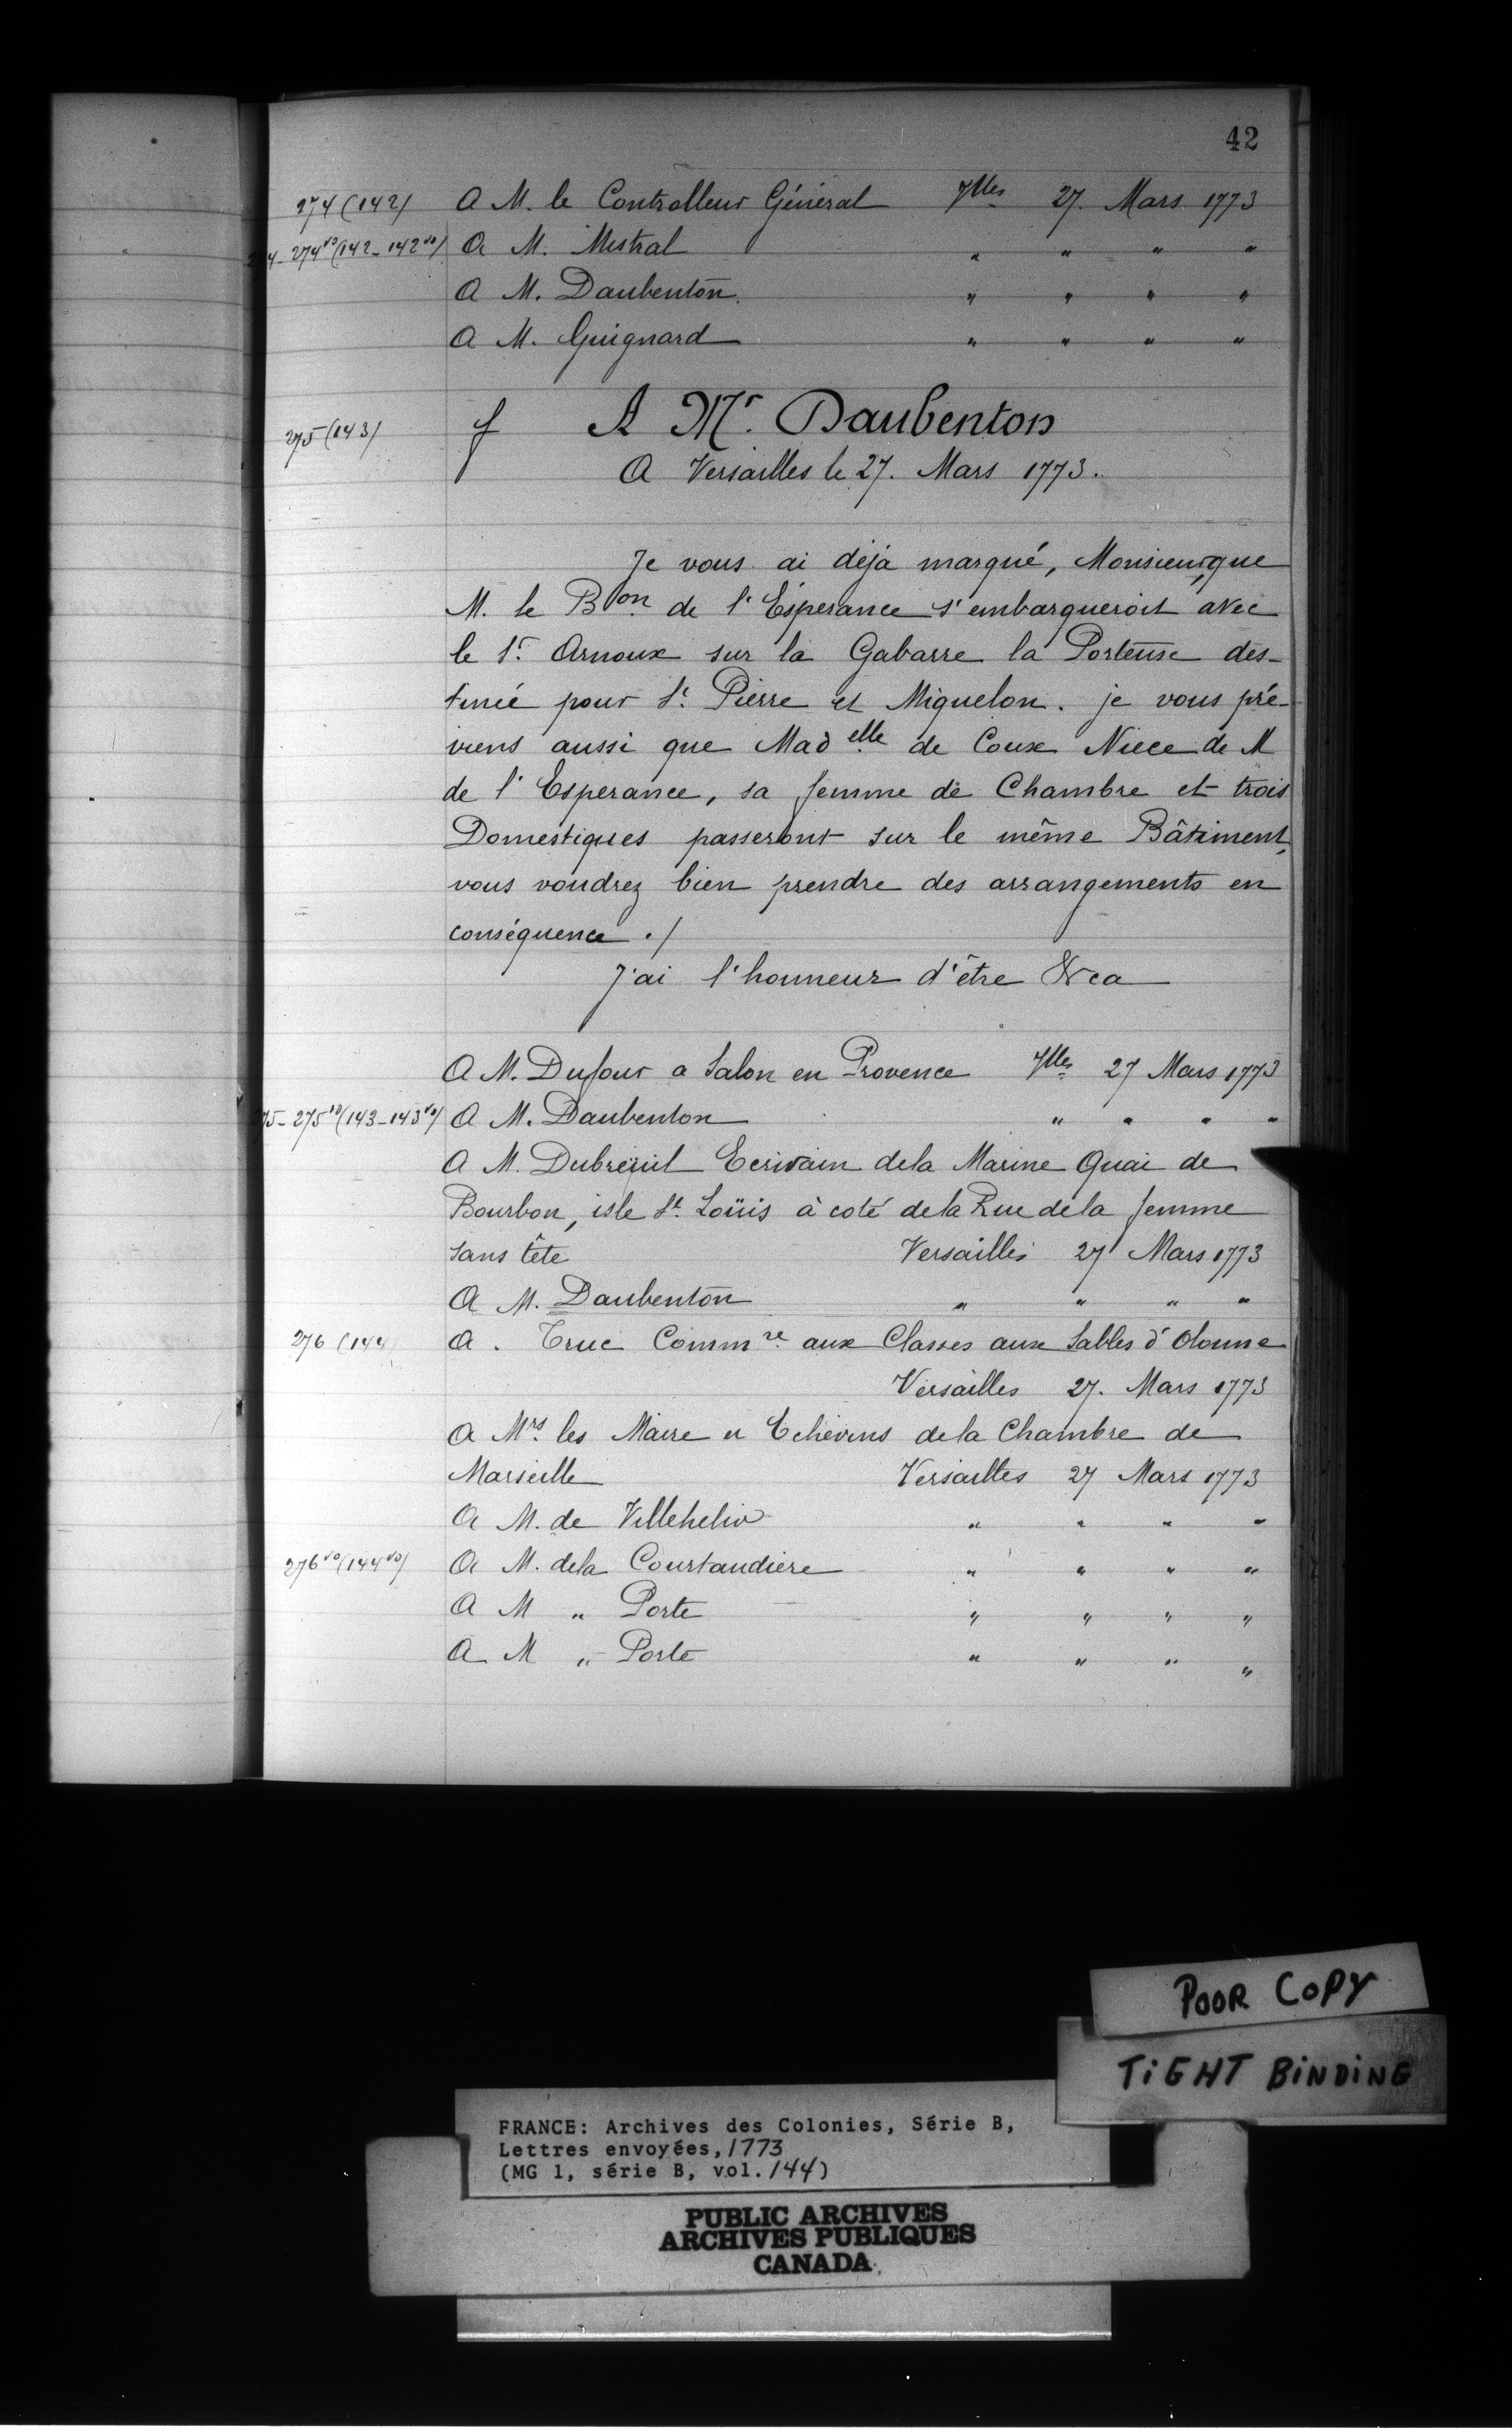 42
274 (142) A M. le Controlleur Général Vlles 27. Mars 1773
4-274vo (142-142vo) A M. Mistral " " " "
A M. Daubenton. " " " "
A M. Guignard " " " "
275 (143) f A Mr. Daubenton
A Versailles le 27. Mars 1773.
Je vous ai déja marqué, Monsieur, que
M. le Bon. de l'Espérance s'embarqueroit avec
le Sr. Arnoux sur la Gabarre la Porteuse des-
tinée pour St. Pierre et Miquelon. je vous pré-
viens aussi que Madelle de Coux Niece de M
de l'Esperance, sa femme de Chambre et trois
Domestiques passeront sur le même Bâtiment,
vous voudrez bien prendre des arrangements en
conséquence ./
J'ai l'honneur d'être &ca
A M. Dufour a Salon en Provence Vlles 27 Mars 1773
75-275vo (143-143vo) A M. Daubenton " " " "
A M. Dubreüil Ecrivain dela Marine Quai de
Bourbon, isle St. Loüis à coté dela Rue dela femme
sans tête Versailles 27 Mars 1773
A M. Daubenton " " " "
276 (144) A . Truc Commre. aux Classes aux Sables d'Olonne
Versailles 27. Mars 1773
A Mrs. les Maire et Echevins dela Chambre de
Marseille Versailles 27 Mars 1773
A M. de Villehelio " " " "
276vo (144vo) A M. dela Courtaudiere " " " "
A M " Porte " " " "
A M " Porte " " " "
POOR COPY
TIGHT BINDING
FRANCE: Archives des Colonies, Série B,
Lettres envoyées, 1773
(MG 1, série B, vol. 144)
PUBLIC ARCHIVES
ARCHIVES PUBLIQUES
CANADA